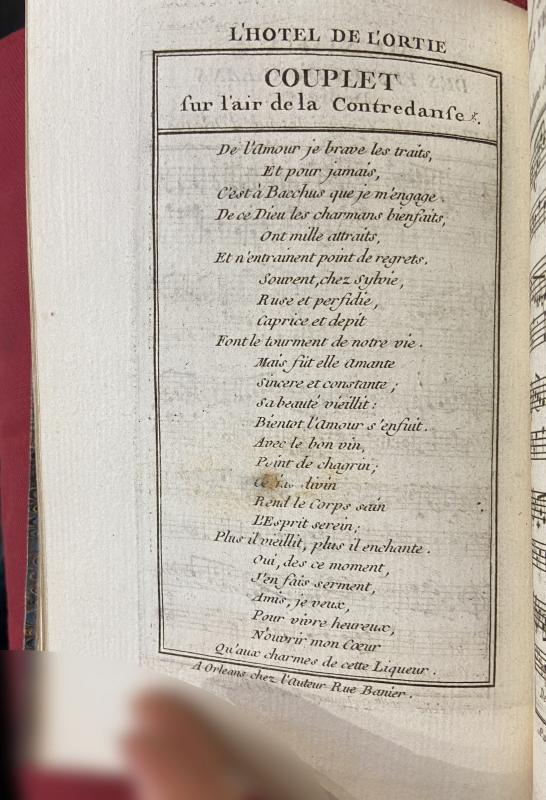 L'HOTEL DE L'ORTIE
COUPLET
sur l'air de la Contredanse.
De l'Amour je brave les traits,
Et pour jamais,
C'est à Bacchus que je m'engage.
De ce Dieu les charmans bienfaits,
Ont mille attraits,
Et n'entrainent point de regrets.
Souvent, chez Sylvie,
Ruse et perfidie,
Caprice et depit
Font le tourment de notre vie.
Mais fût elle Amante
Sincere et constante ;
Sa beauté vieillit :
Bientot l'Amour s'enfuit.
Avec le bon vin,
Point de chagrin ;
Ce jus divin
Rend le Corps sain
L'Esprit serein ;
Plus il vieillit, plus il enchante.
Oui, des ce moment,
J'en fais serment,
Amis, je veux,
Pour vivre heureux,
N'ouvrir mon Cœur
Qu'aux charmes de cette Liqueur.
A Orleans chez l'auteur Rue Banier.